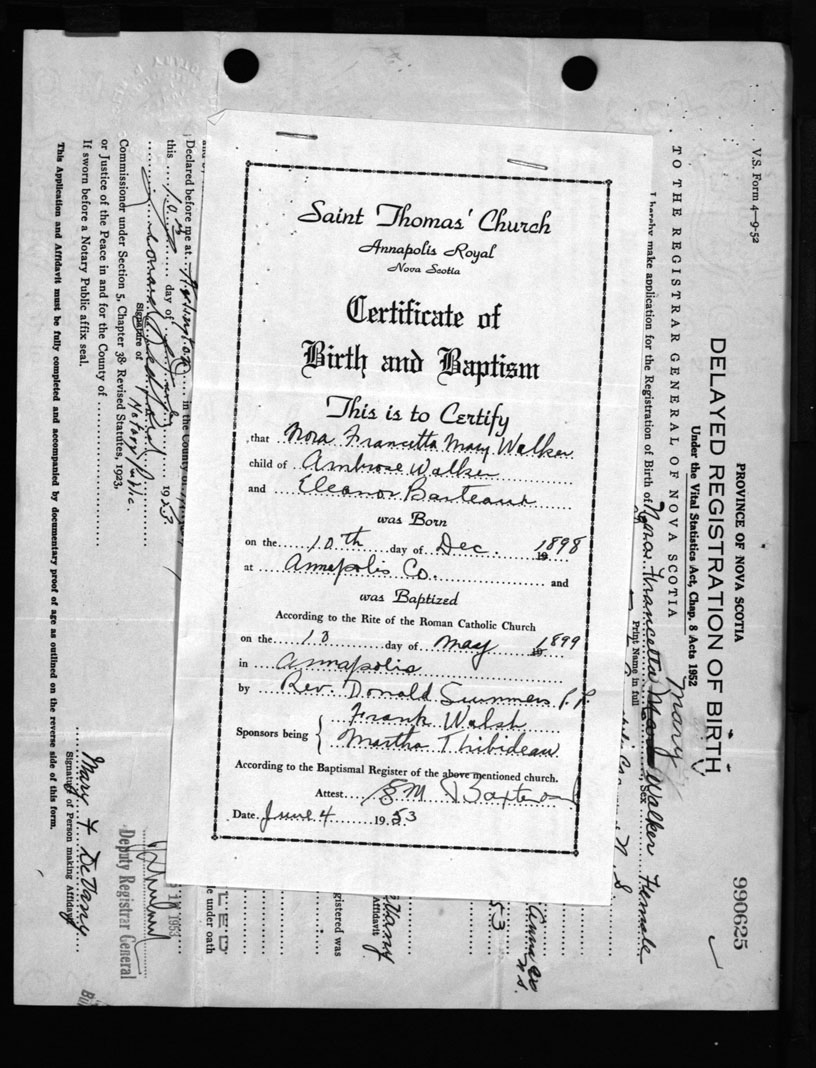 Saint Thomas' Church
Annapolis Royal
Nova Scotia
Certificate of
Birth and Baptism
This is to Certify
that Nora Francetta Mary Walker
child of Ambrose Walker
and Eleanor Barteaux
was Born
on the 10th day of Dec. 1898
at Annapolis Co. and
was Baptized
According to the Rite of the Roman Catholic Church
on the 13 day of May 1899
in Annapolis
by Rev. Donald Summers P.P.
Sponsors being { Frank Walsh
Martha Thibideau
According to the Baptismal Register of the above mentioned church.
Attest
Date June 4 1953
V.S. Form 4-9-52
PROVINCE OF NOVA SCOTIA
DELAYED REGISTRATION OF BIRTH
990625
Under the Vital Statistics Act, Chap. 8 Acts 1952
TO THE REGISTRAR GENERAL OF NOVA SCOTIA
Mary
I hereby make application for the Registration of Birth of Nora Francetta Walker Sex Female
Print Name in full
Anna Co
N.S.
53
Affidavit
gistered was
LED
e under oath
1953
Deputy Registrar General
Declared before me at in the County of
this 10th day of June 1953
Signature of
Notary Public.
Commissioner under Section 5, Chapter 38 Revised Statutes, 1923,
or Justice of the Peace in and for the County of
If sworn before a Notary Public affix seal.
Mary F DeVany
Signature of Person making Affidavit
This Application and Affidavit must be fully completed and accompanied by documentary proof of age as outlined on the reverse side of this form.